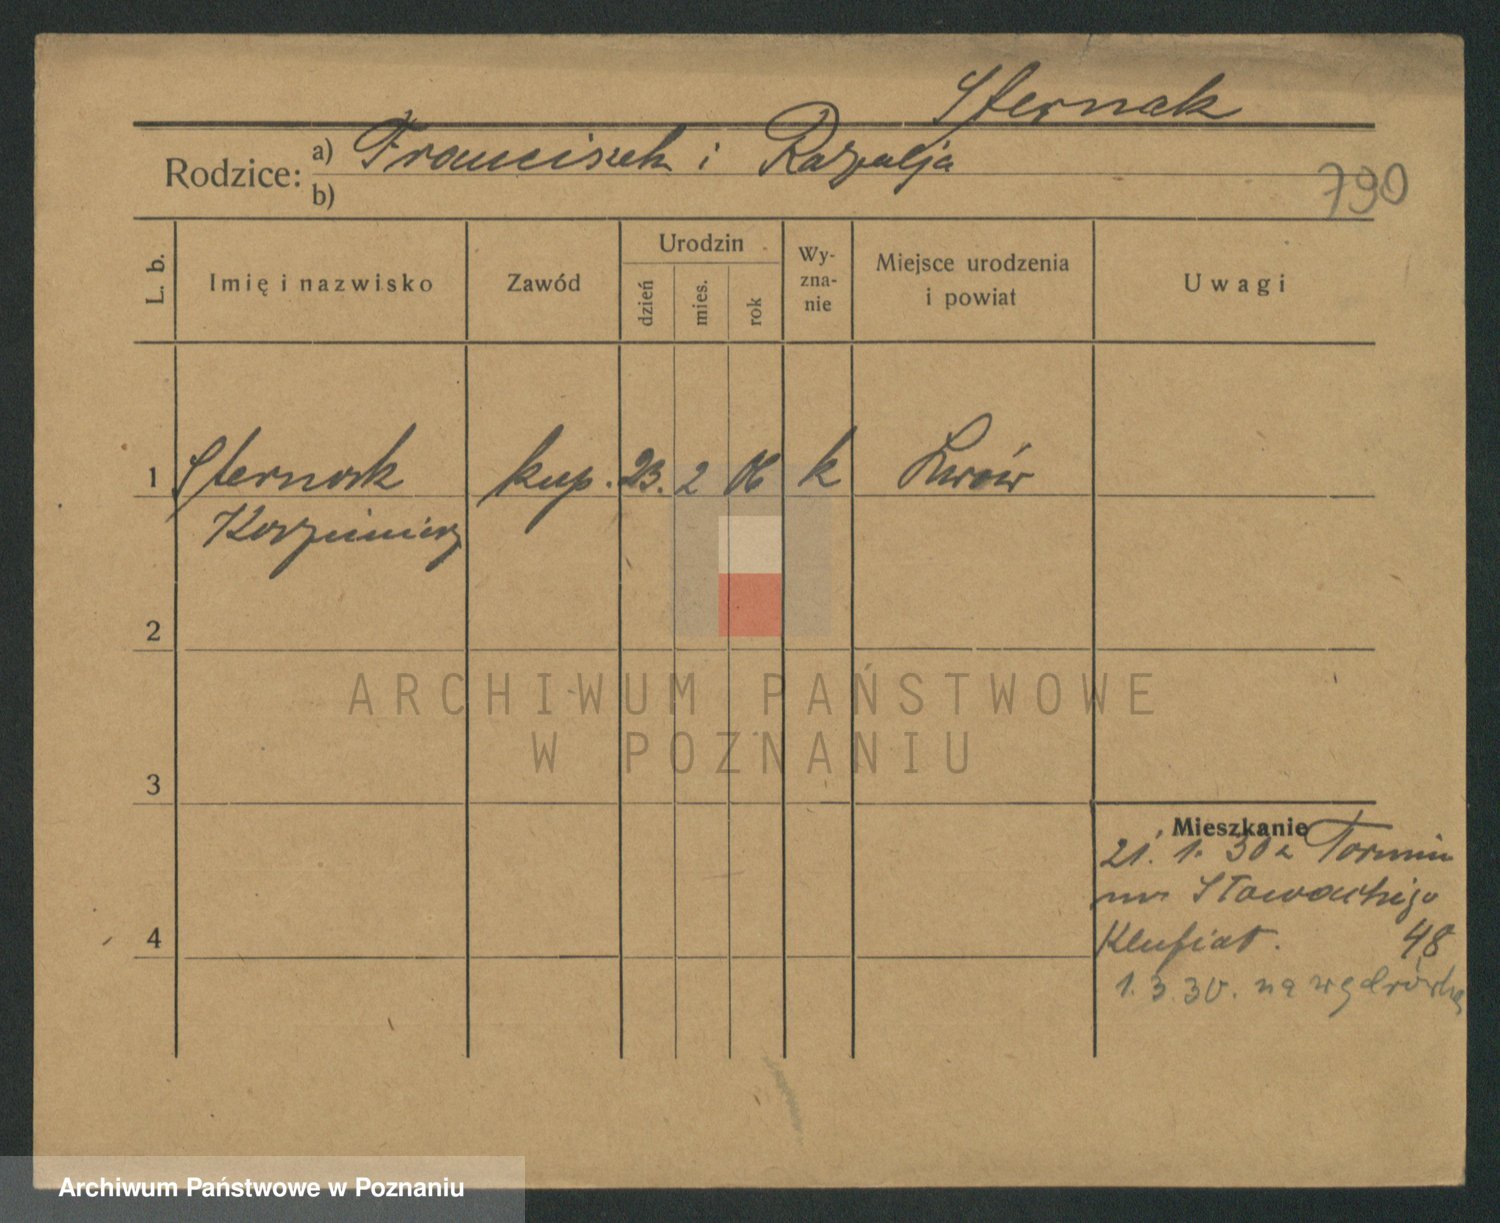 Sternak
Rodzice: a) Franciszek i Rozalja
b)
790
L. b.
Imię i nazwisko
Zawód
Urodzin
dzień
mies.
rok
Wy-
zna-
nie
Miejsce urodzenia
i powiat
Uwagi
1 Sternak kup. 23. 2 06 k Lwów
Kazimierz
2
ARCHIWUM PAŃSTWOWE
W POZNANIU
3
Mieszkanie
21. 1. 30 z Torunia
Słowackiego
4
48
1. 3. 30. na wędrówkę
Archiwum Państwowe w Poznaniu